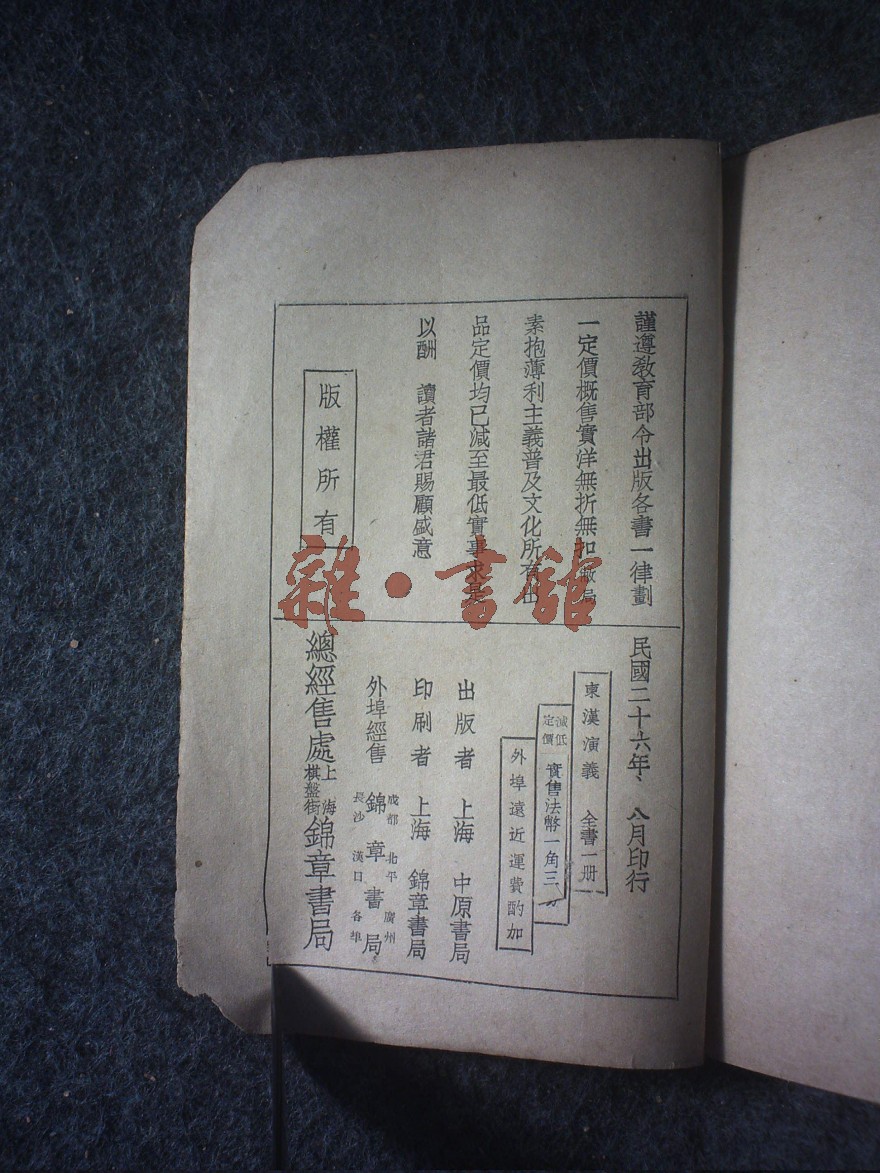 謹遵教育部令出版各書一律劃
一定價概售實洋無折無扣敝局
素抱薄利主義普及文化所有出
品定價均已減至最低實事求是
以酬　讀者諸君賜顧盛意
版權所有
民國二十六年、八月印行
東漢演義　全書一册
減低定價　實售法幣一角三分
外埠遠近運費酌加
出版者　上海　中原書局
印刷者　上海　錦章書局
外埠經售　錦章書局
成都　北平　廣州
長沙　漢口　各埠
總經售處　上海棋盤街　錦章書局
雜·書館